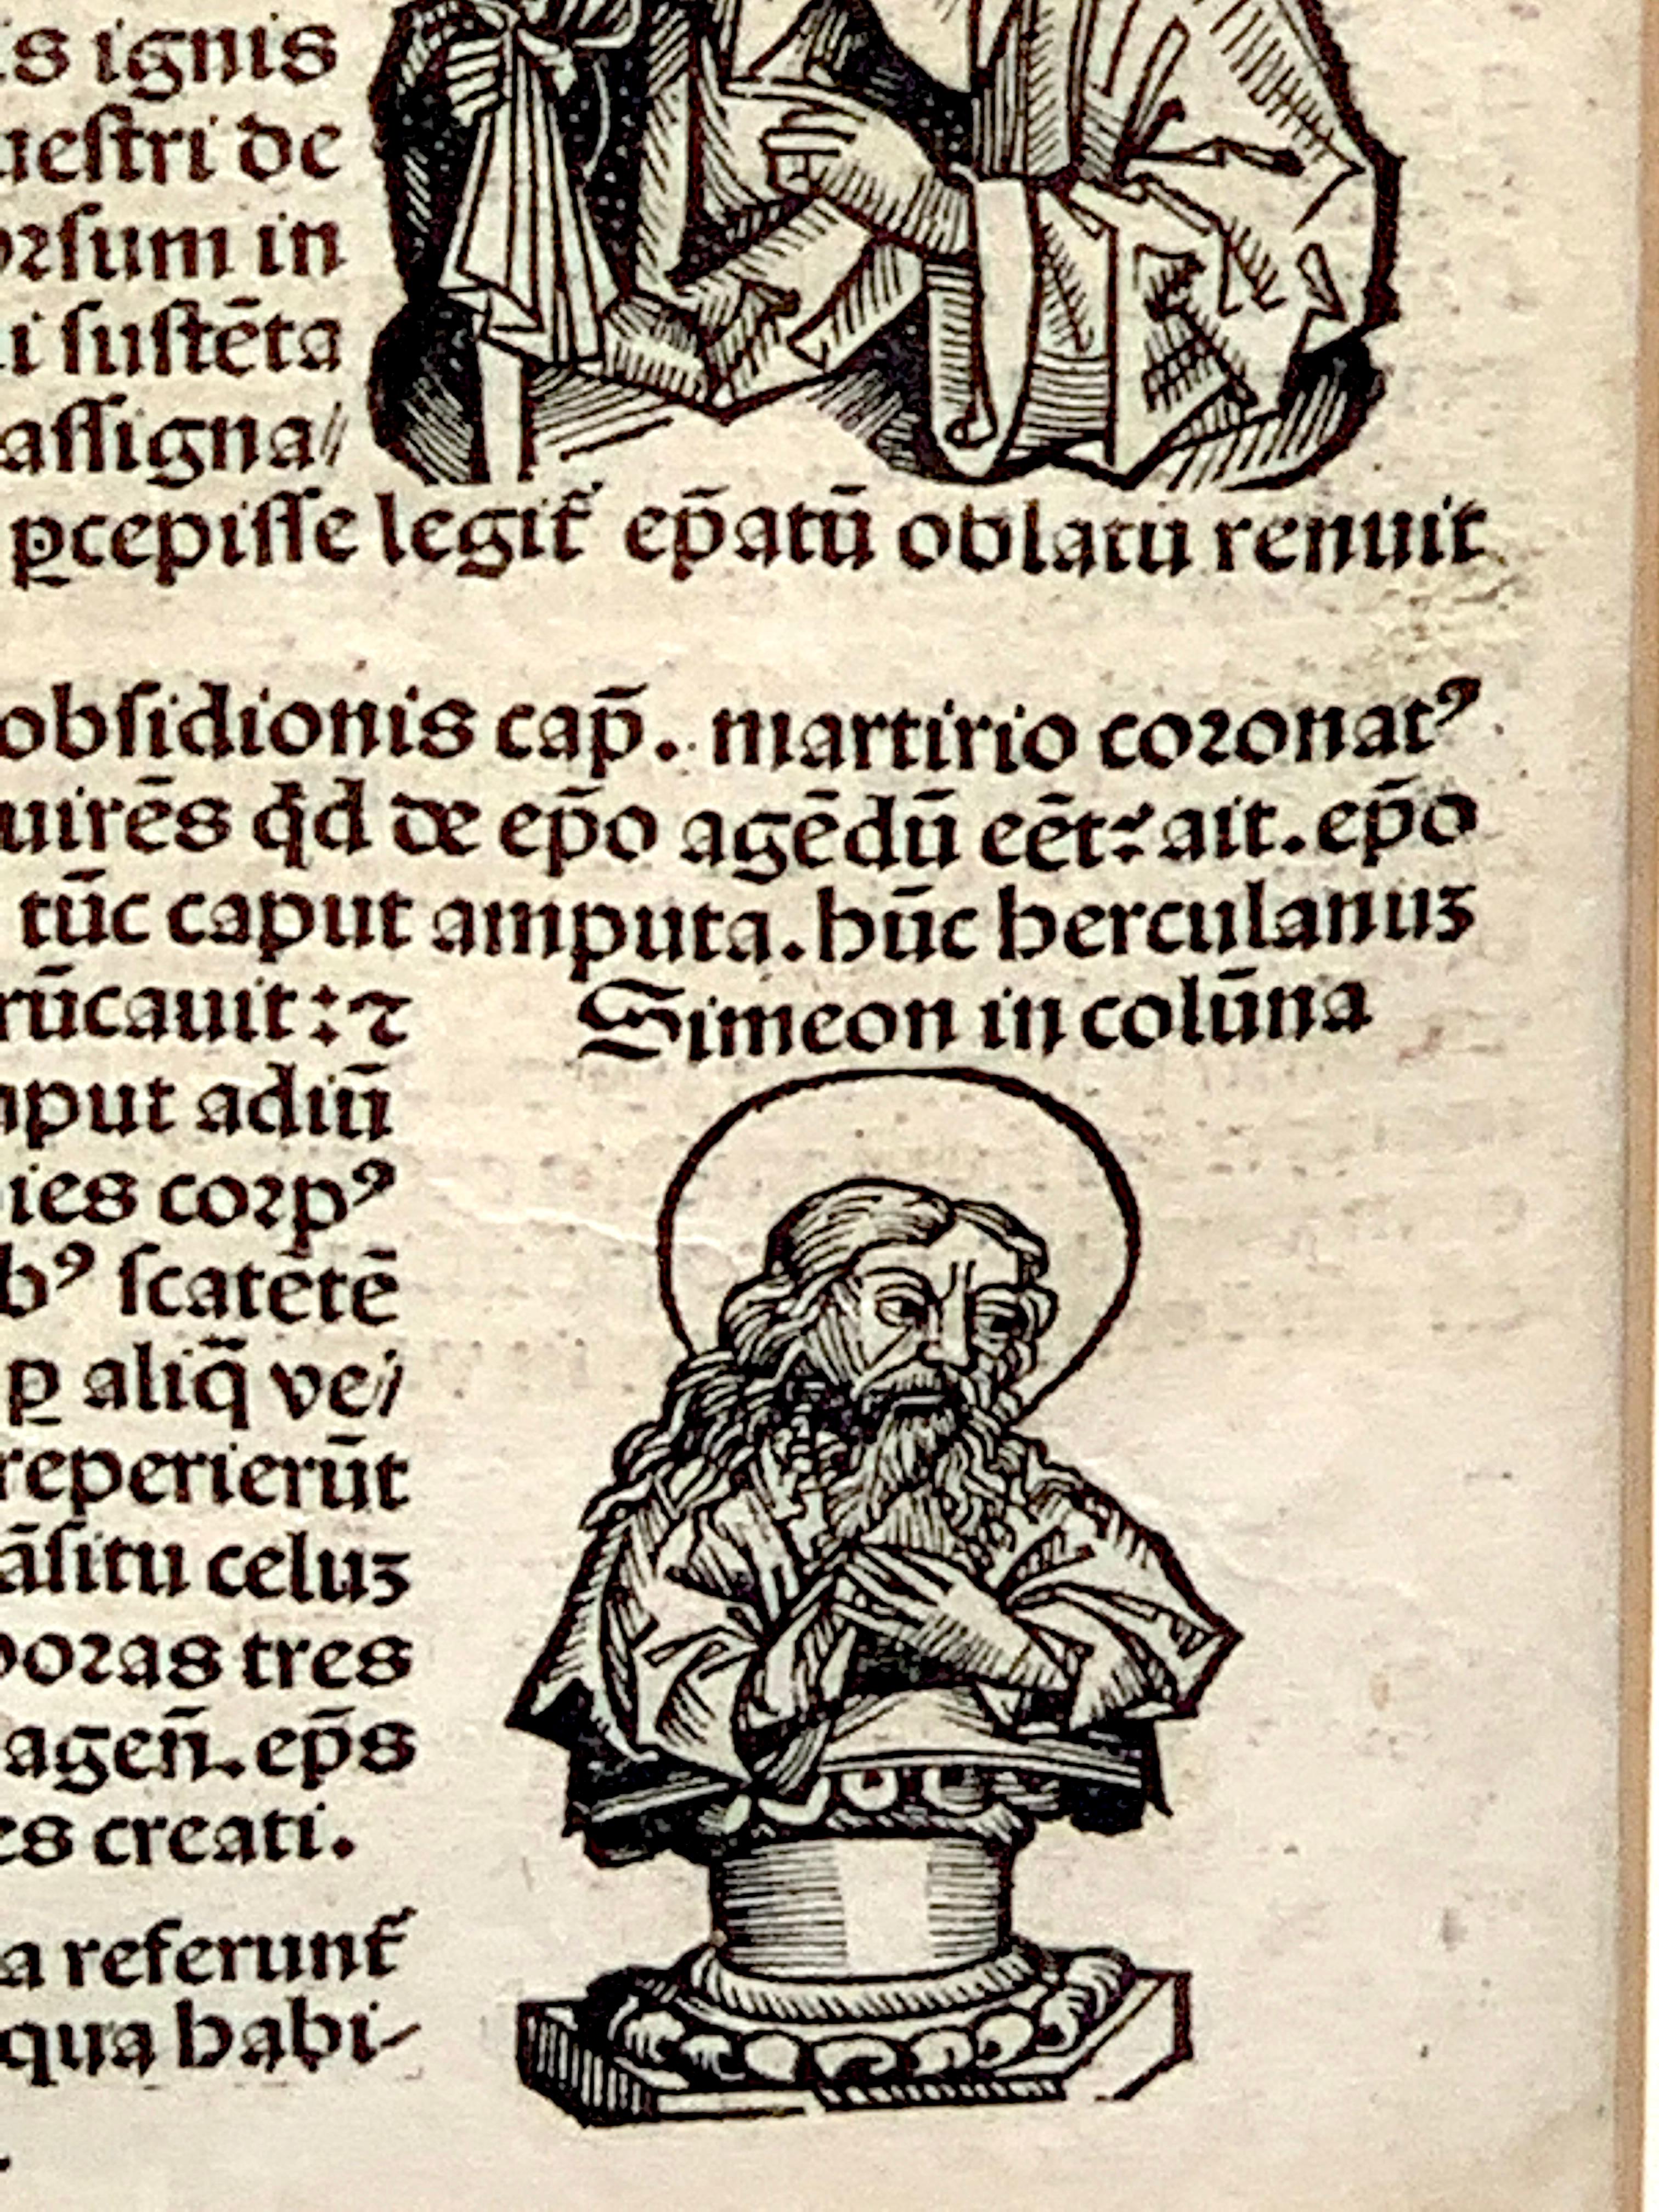 is ignis
ueſtri de
orſum in
i ſuſtēta
aſſigna//
ꝑcepiſſe legit᷑ ep̄atū oblatū renuit
obſidionis cap̄. martirio coronatꝰ
uirēs qd̄ de ep̄o agēdū eēt: ait. ep̄o
tūc caput amputa. hūc herculanuꝫ
rūcauit: ⁊
Simeon in colūna
put adiū
ies corpꝰ
bꝰ ſcatētē
ꝑ aliq̄ ve//
reperierūt
āſitu celuꝫ
horas tres
agen̄. ep̄s
es creati.
a referunt᷑
qua habi-